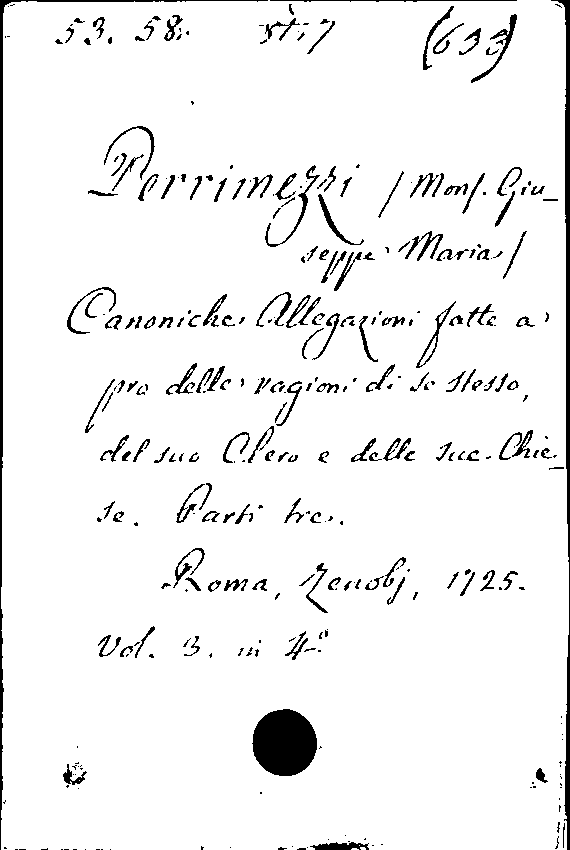 53. 58. st. 7 (633)
Perrimezzi / Mons. Giu-
seppe Maria /
Canoniche Allegazioni fatte a
pro delle ragioni di se stesso,
del suo Clero e delle sue Chie-
se. Parti tre.
Roma, Zenobj, 1725.
Vol. 3. in 4º